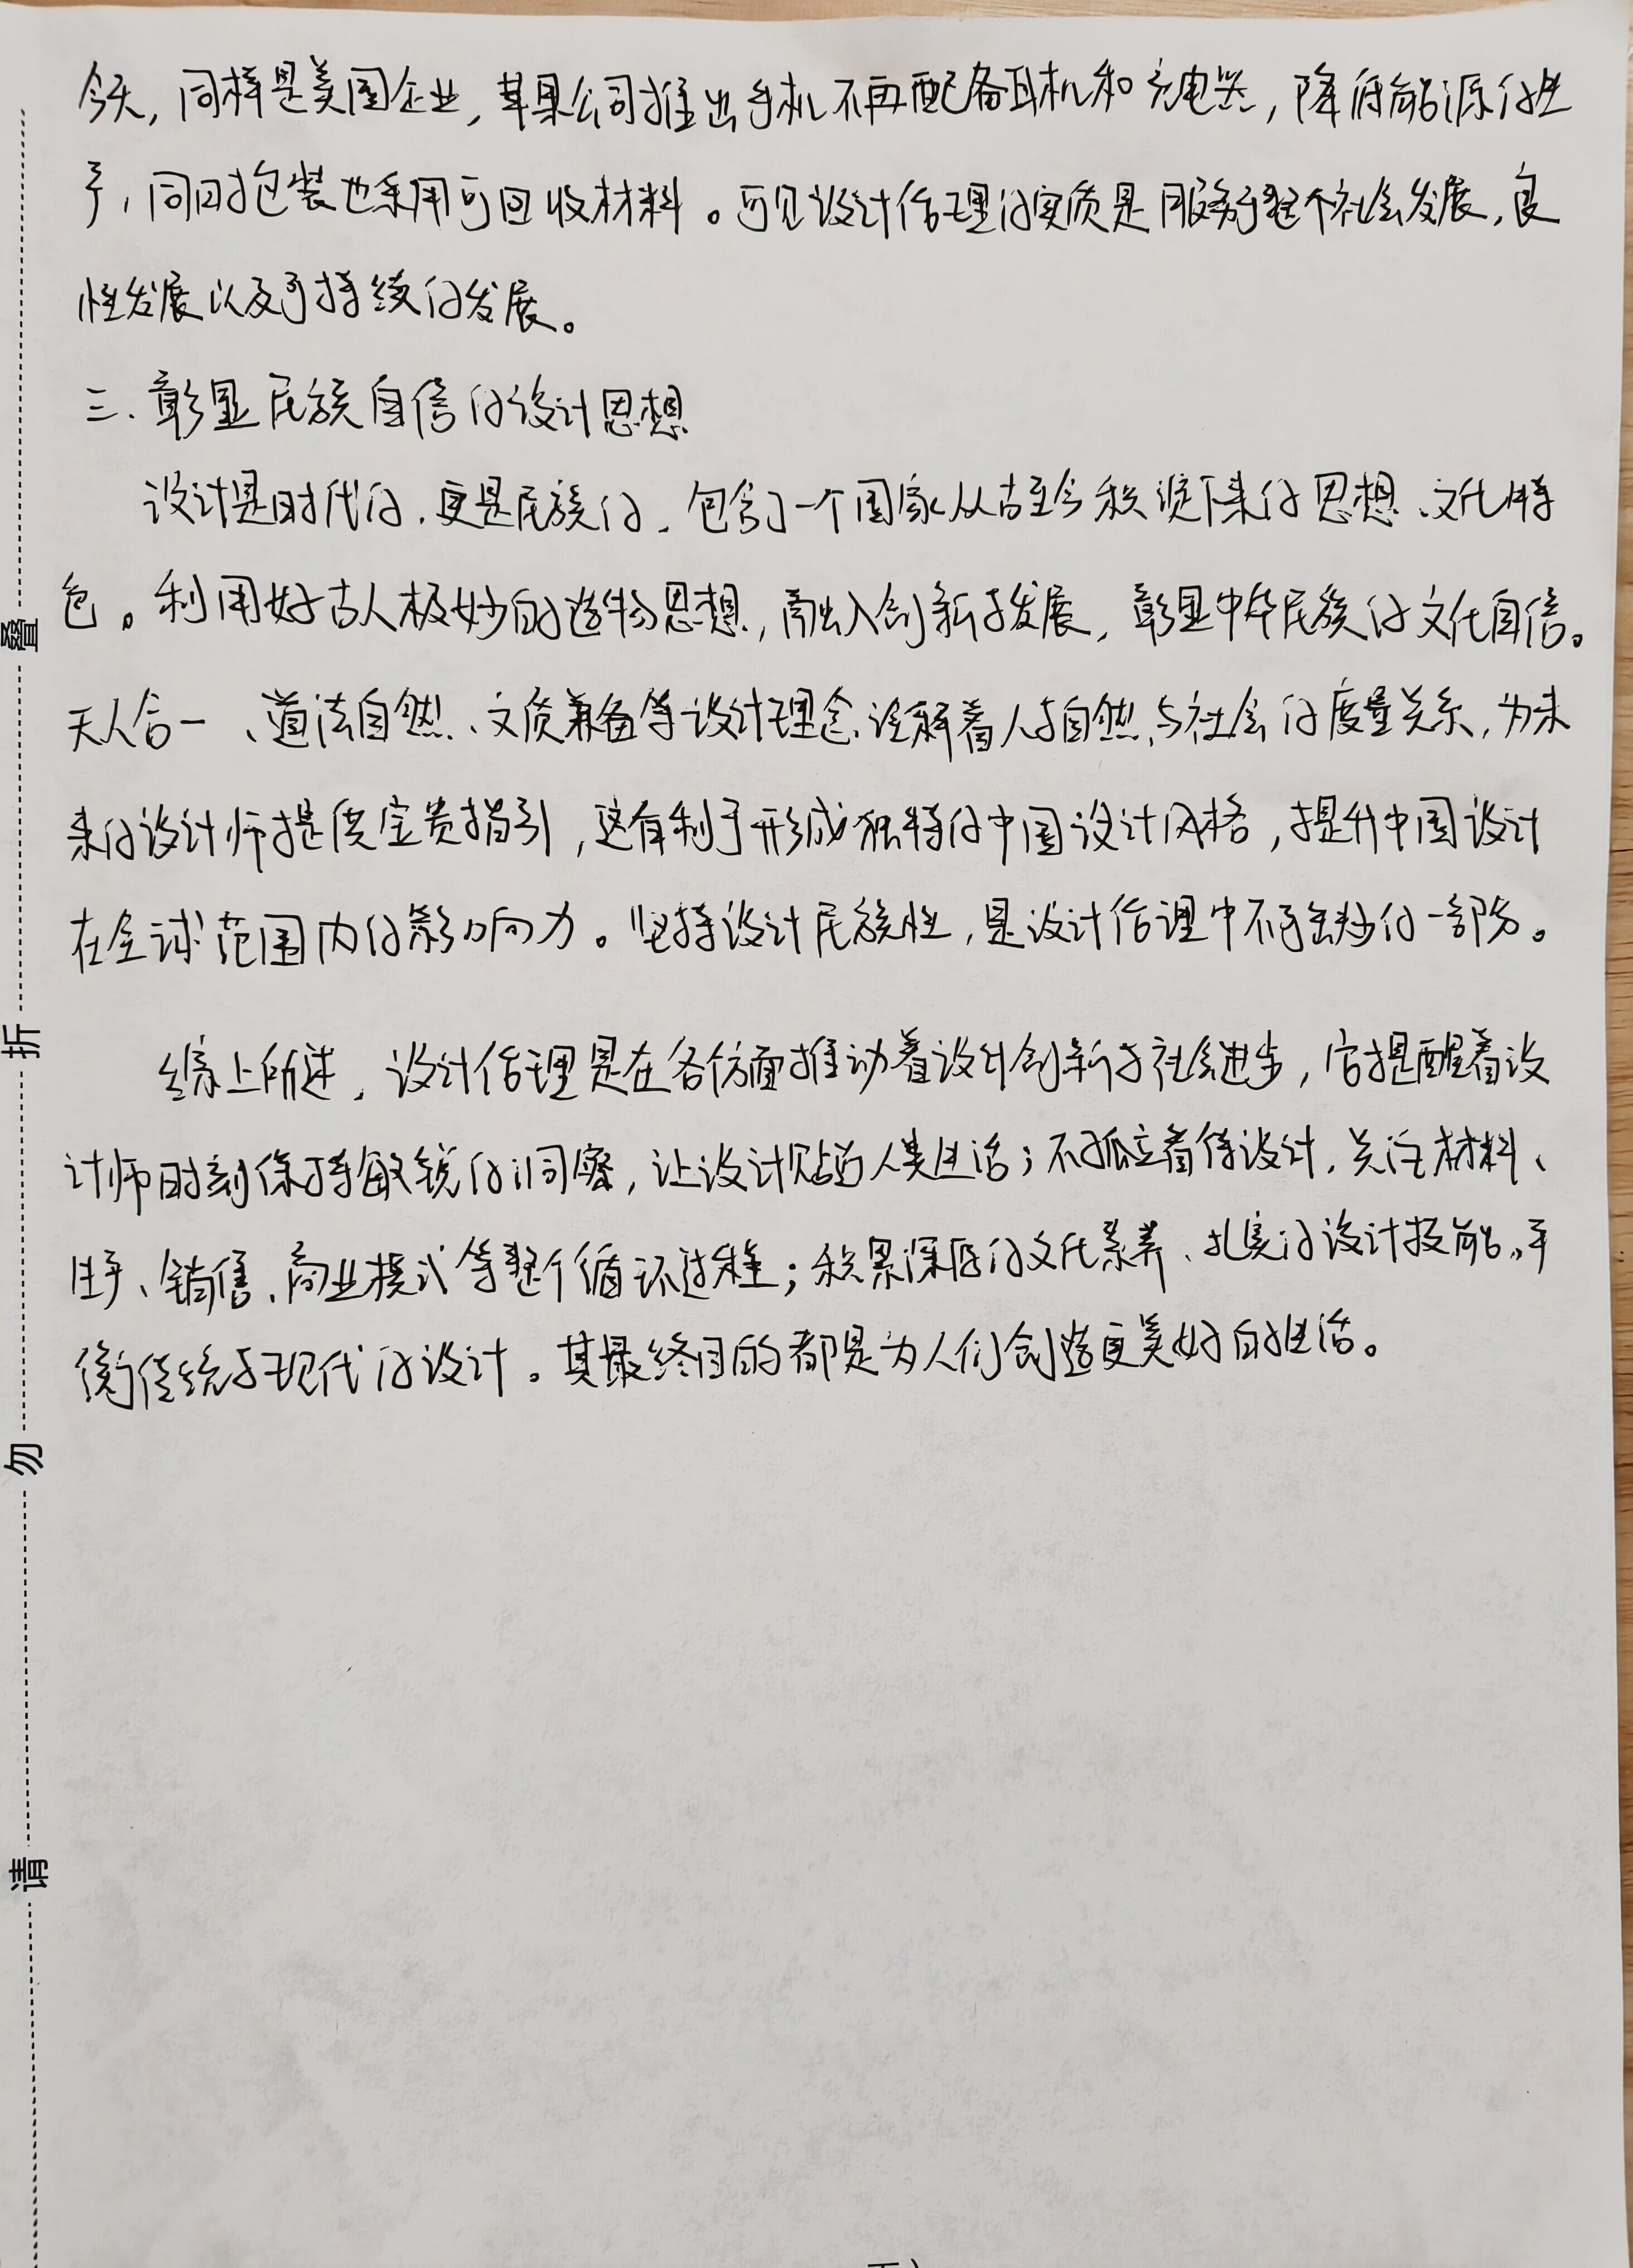 今天，同样是美国企业，苹果公司推出手机不再配备耳机和充电器，降低能源的生
产，同时包装也采用可回收材料。可见设计伦理的实质是服务于整个社会发展，良
性发展以及可持续的发展。
三、彰显民族自信的设计思想
设计是时代的，更是民族的，包含了一个国家从古至今积淀下来的思想、文化特
色。利用好古人极妙的造物思想，融入创新与发展，彰显中华民族的文化自信。
天人合一、道法自然、文质兼备等设计理念，诠解着人与自然、与社会的度量关系，为未
来的设计师提供宝贵指引，这有利于形成独特的中国设计风格，提升中国设计
在全球范围内的影响力。坚持设计民族性，是设计伦理中不可缺少的一部分。
综上所述，设计伦理是在各方面推动着设计创新与社会进步，它提醒着设
计师时刻保持敏锐的洞察，让设计贴近人类生活；不孤立看待设计，关注材料、
生产、销售、商业模式等整个循环过程；积累深厚的文化素养、扎实的设计技能，平
衡传统与现代的设计。其最终目的都是为人们创造更美好的生活。
叠
折
勿
请